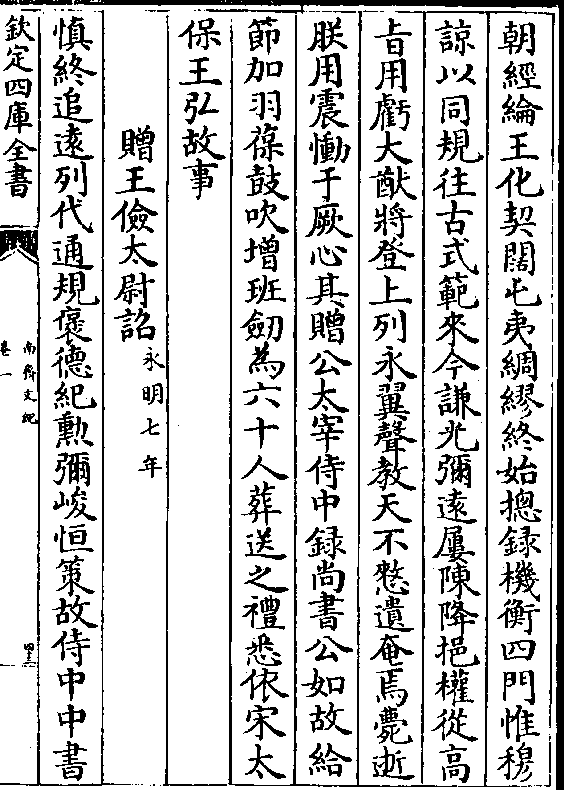 朝經綸王化契闊屯夷綢繆終始揔録機衡四門惟穆
諒以同規往古式範來今謙光彌遠屢陳降挹權從高
㫖用虧大猷將登上列永翼聲教天不憗遺奄焉薨逝
朕用震慟于厥心其贈公太宰侍中録尚書公如故給
節加羽葆鼓吹增班劒為六十人葬送之禮悉依宋太
保王弘故事
贈王儉太尉詔永明七年
慎終追遠列代通規褒德紀勲彌峻恒策故侍中中書
欽定四庫全書
南齊文紀
卷一